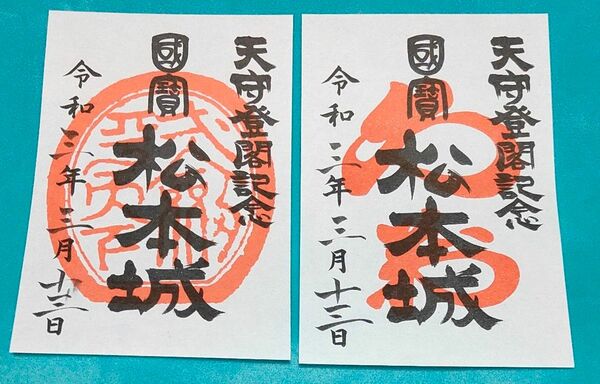 天守登閣記念
國寶
松本城
令和三年三月十三日
天守登閣記念
國寶
松本城
令和三年三月十三日